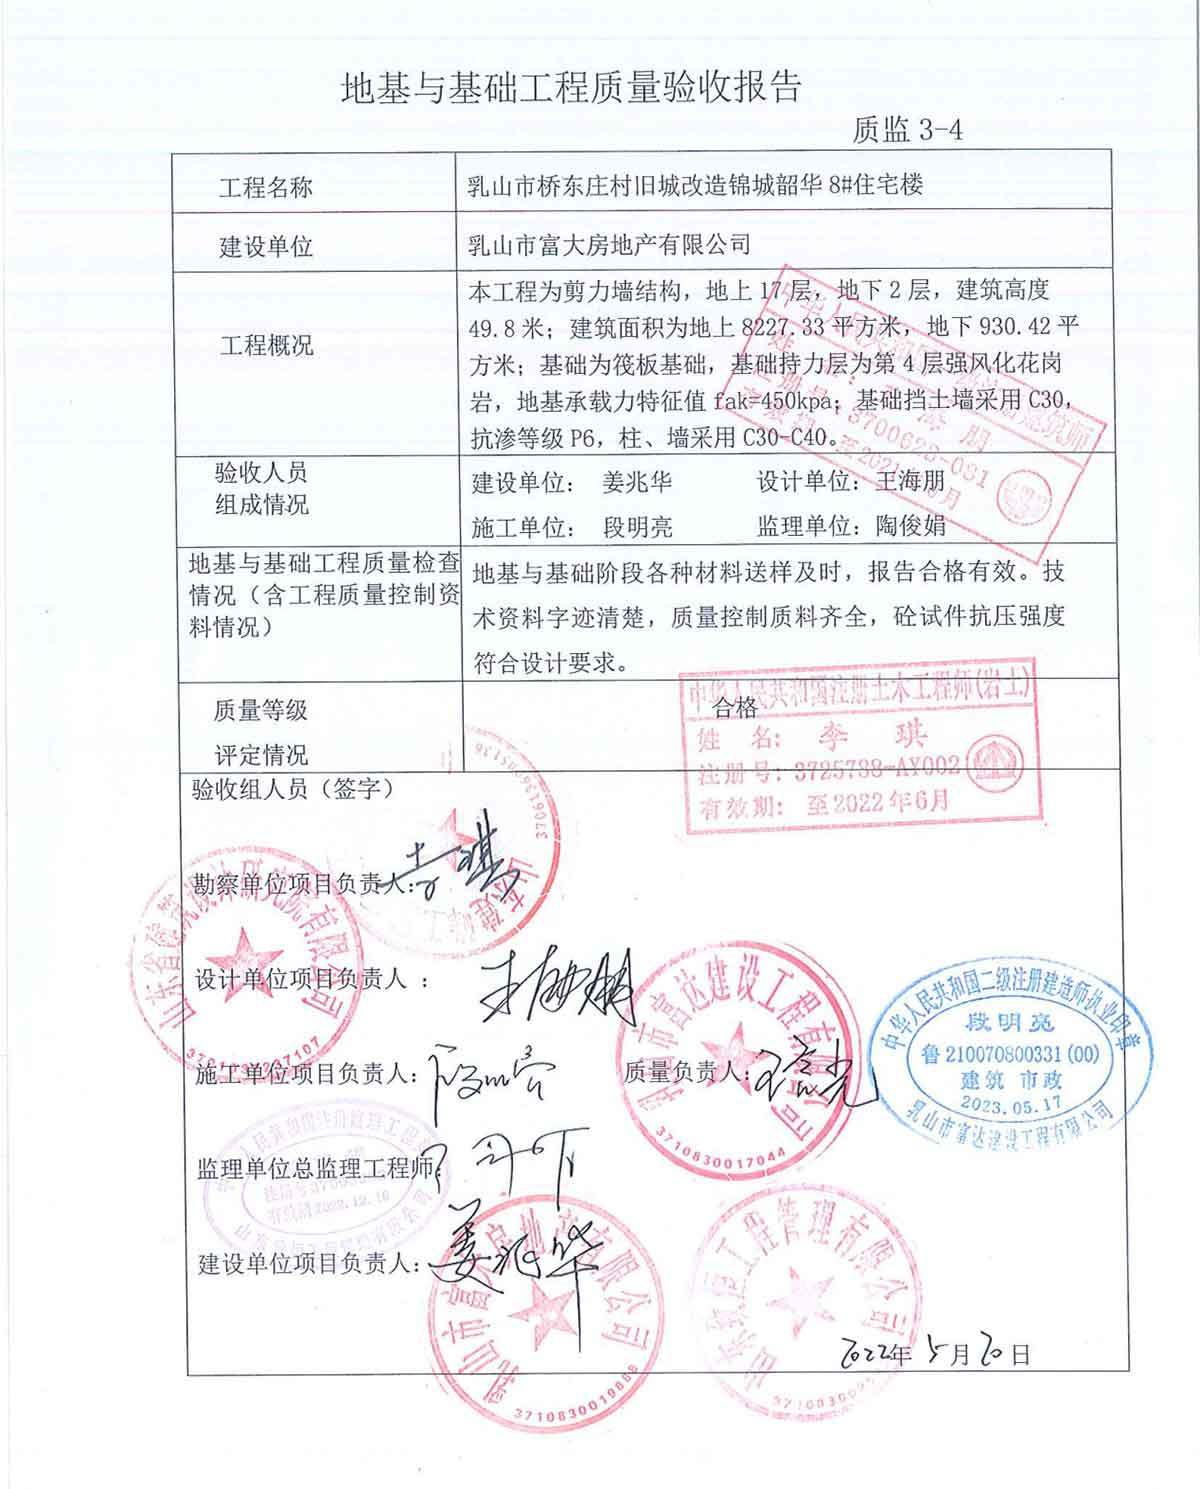 地基与基础工程质量验收报告
质监 3-4
工程名称
乳山市桥东庄村旧城改造锦城韶华 8#住宅楼
建设单位
乳山市富大房地产有限公司
工程概况
本工程为剪力墙结构，地上 17 层，地下 2 层，建筑高度
49.8 米；建筑面积为地上 8227.33 平方米，地下 930.42 平
方米；基础为筏板基础，基础持力层为第 4 层强风化花岗
岩，地基承载力特征值 fak=450kpa；基础挡土墙采用 C30，
抗渗等级 P6，柱、墙采用 C30-C40。
验收人员
组成情况
建设单位： 姜兆华 设计单位：王海朋
施工单位： 段明亮 监理单位：陶俊娟
地基与基础工程质量检查
情况（含工程质量控制资
料情况）
地基与基础阶段各种材料送样及时，报告合格有效。技
术资料字迹清楚，质量控制质料齐全，砼试件抗压强度
符合设计要求。
质量等级
评定情况
合格
中华人民共和国注册土木工程师(岩土)
姓 名： 李 琪
注册号：3725788-AY002
有效期： 至2022年6月
验收组人员（签字）
勘察单位项目负责人：李琪
设计单位项目负责人 ：王海朋
施工单位项目负责人：段明亮
质量负责人：
监理单位总监理工程师：
建设单位项目负责人：姜兆华
山东省建筑设计研究院有限公司
乳山市富达建设工程有限公司
3710830017044
中华人民共和国二级注册建造师执业印章
段明亮
鲁 210070800331(00)
建筑 市政
2023.05.17
乳山市富达建设工程有限公司
乳山市富大房地产有限公司
3710830019888
工程管理有限公司
2022年 5月 20日